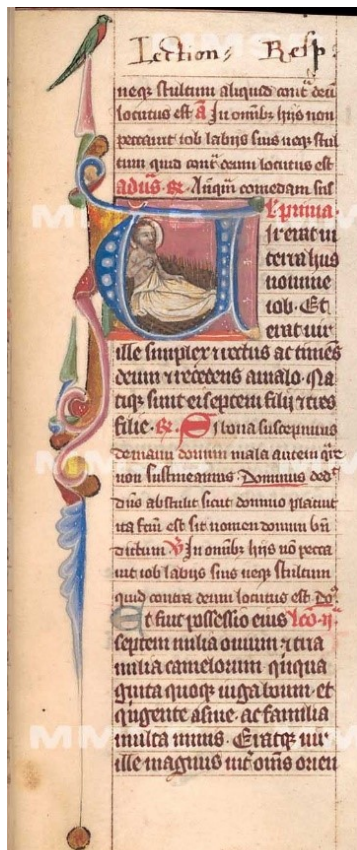 Lection: Resp:
neq; stultum aliquid cont̄ deū
locutus est a Jn omīb; hijs non
peccauit iob labijs suis neq; stul
tum quid cont̄ deum locutus est
adūs. R. Anq̄m comedam sus
l'. prima.
Jr erat in
terra hus
nomine
iob. Et
erat uir
ille simplex ⁊ rectus ac timēs
deum ⁊ recedens a malo. Na
tiq; sunt ei septem filij ⁊ tres
filie. R. Si bona suscepimus
de manu domini mala autem q̄re
non sustineamus. Dominus ded'
dn̄s abstulit sicut domino placuit
ita fc̄m est sit nomen domini bn̄
dictum V Jn omīb; hijs nō pecca
uit iob labijs suis neq; stultum
quid contra deum locutus est. Do.
Et fuit possessio eius lc̄o. ij.
septem milia ouium ⁊ tria
milia camelorum q̄nqua
ginta quoq; iuga boum. et
q̄ngente asine. ac familia
multa nimis. Eratq; uir
ille magnus int̄ om̄s orien